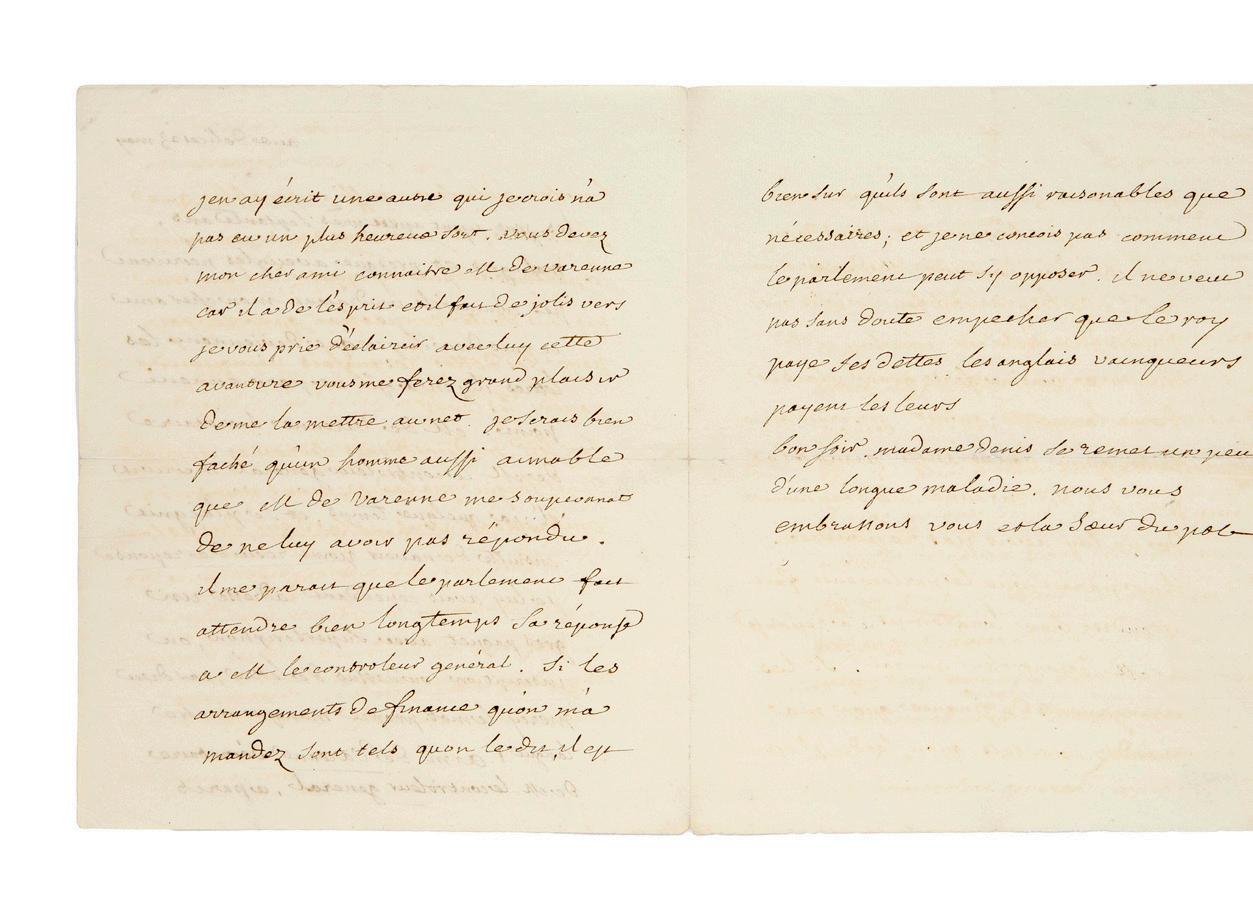 jen ay écrit une autre qui je crois n'a
pas eu un plus heureux sort. vous devez
mon cher ami connaitre M de varenne
car il a de l'esprit et il fait de jolis vers
je vous prie d'éclaircir avec luy cette
avanture vous me ferez grand plaisir
de me la mettre au net. je serais bien
faché qu'un homme aussi aimable
que M de varenne me soupconnat
de ne luy avoir pas répondu.
il me parait que le parlement fait
attendre bien longtemps sa réponse
a M le controleur genéral. si les
arrangements de finance qu'on m'a
mandez sont tels quon le dit, il est
bien sur qu'ils sont aussi raisonables que
nécessaires; et je ne concois pas comment
le parlement peut s'y opposer. il ne veut
pas sans doute empecher que le roy
paye ses dettes. les anglais vainqueurs
payent les leurs
bon soir. madame denis se remet un peu
d'une longue maladie. nous vous
embrassons vous et la sœur du pot